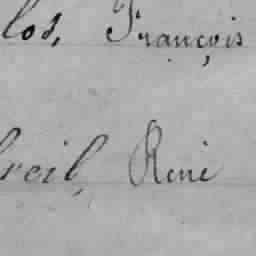 los, François
breil, René